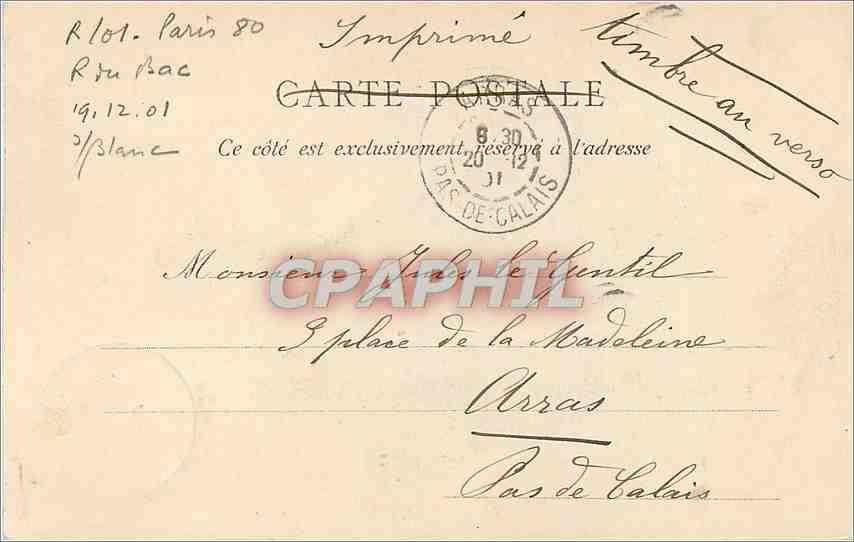 R/ol. Paris 80
R du Bac
19.12.01
s/Blanc
Imprimé
timbre au verso
CARTE POSTALE
Ce côté est exclusivement réservé à l'adresse
ARRAS
8 30
20 12
01
PAS-DE-CALAIS
Monsieur Jules le Gentil
CPAPHIL
9 place de la Madeleine
Arras
Pas de Calais